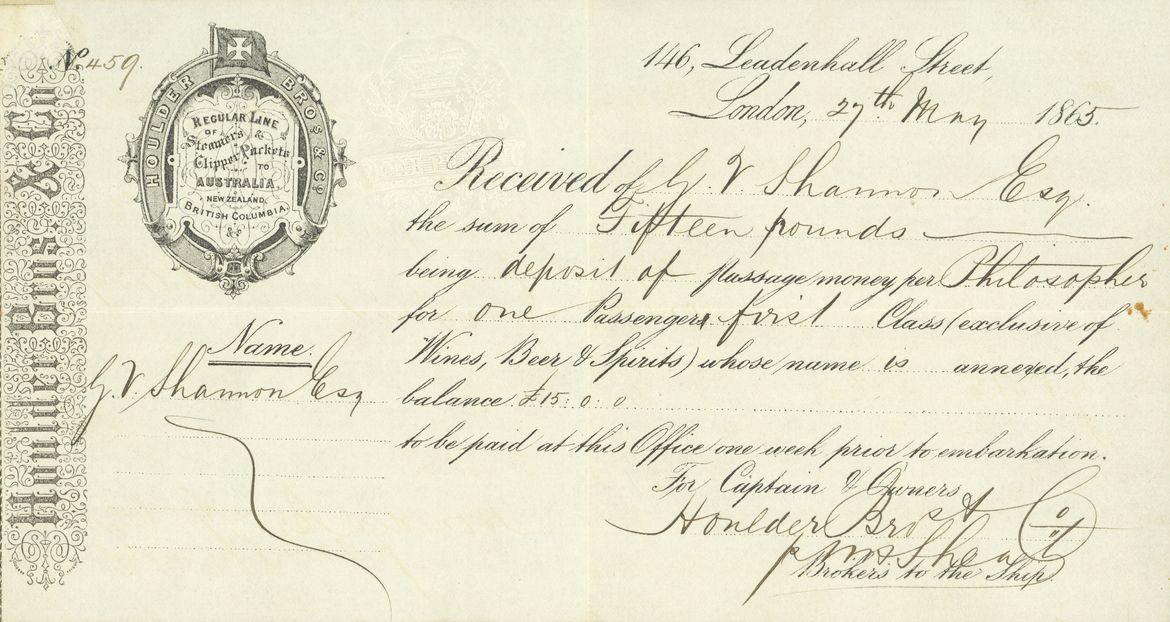 Houlder Bros. & Co
No. 459.
HOULDER BROS & Co
REGULAR LINE
OF
Steamers &
Clipper Packets
TO
AUSTRALIA,
NEW ZEALAND,
BRITISH COLUMBIA,
&c
146, Leadenhall Street,
London, 27th May 1865.
Received of G. V Shannon Esq.
the sum of Fifteen pounds
being deposit of Passage money per Philosopher
for one Passenger first Class (exclusive of
Wines, Beer & Spirits) whose name is annexed, the
balance £15. 0. 0
to be paid at this Office one week prior to embarkation.
For Captain & Owners
Houlder Bros & Co
Brokers to the Ship
Name.
G. V. Shannon Esq